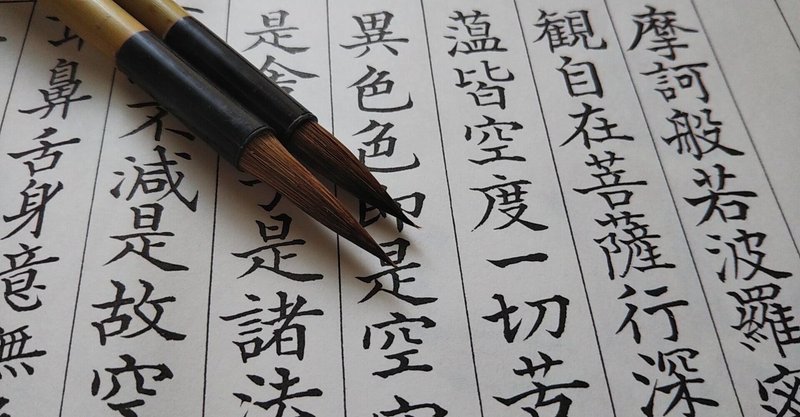 摩訶般若波羅
観自在菩薩行深
蘊皆空度一切苦
異色色即是空
是舎是諸法
不減是故空
鼻舌身意無